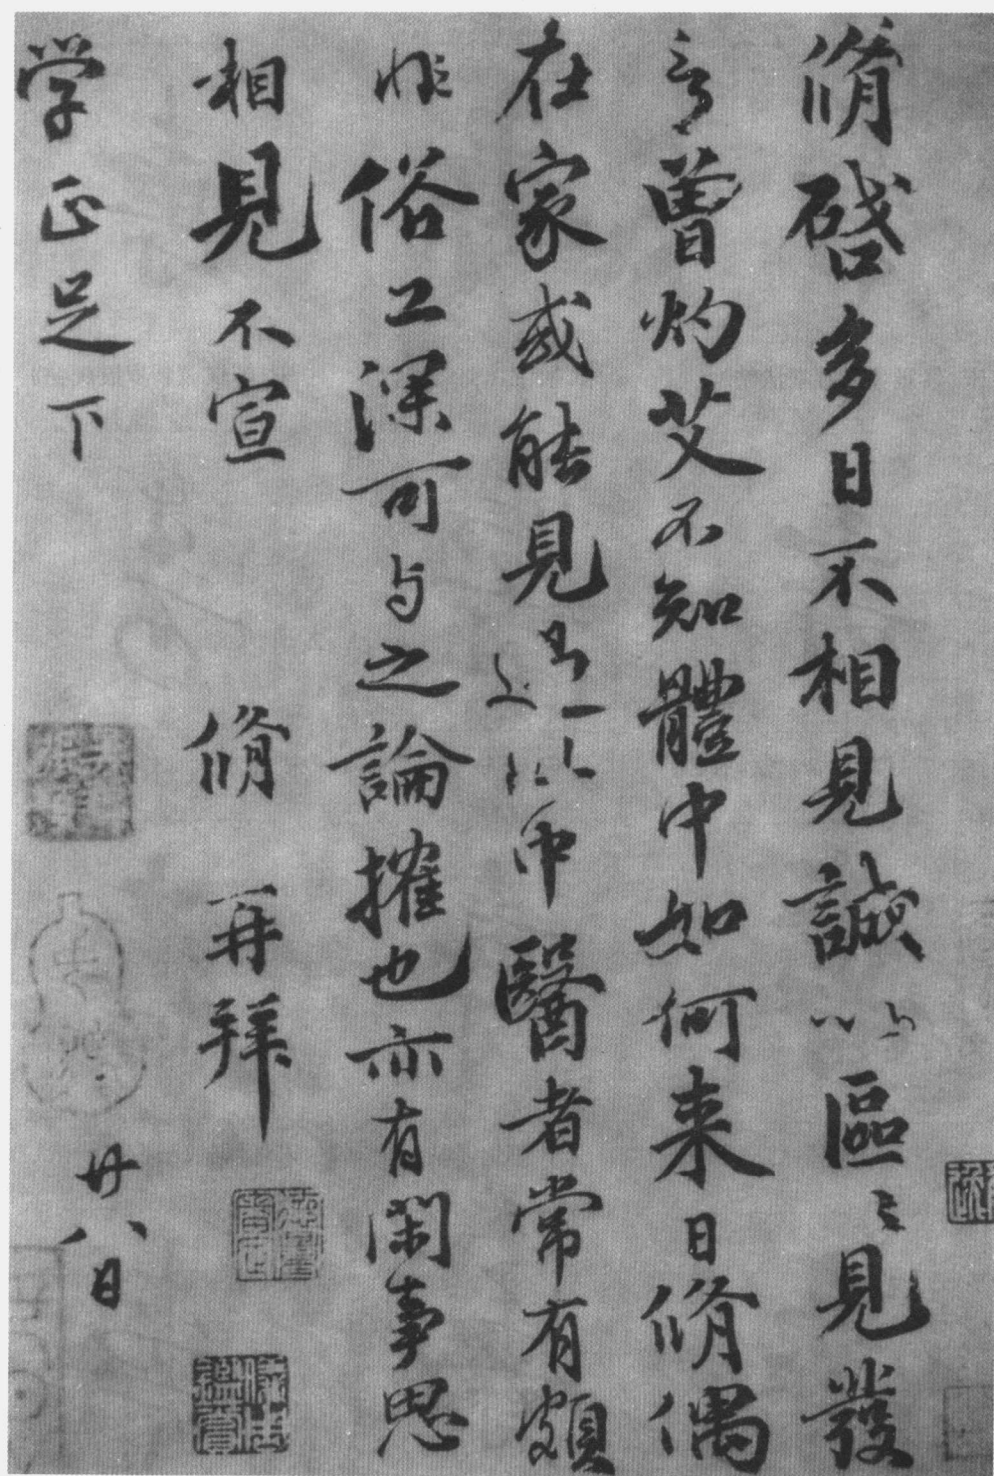 脩啓多日不相見誠以區〻見發
言曾灼艾不知體中如何来日脩偶
在家或能見過以中醫者常有頗
非俗工深可与之論搉也亦有閑事思
相見不宣　脩再拜
学正足下　廿八日